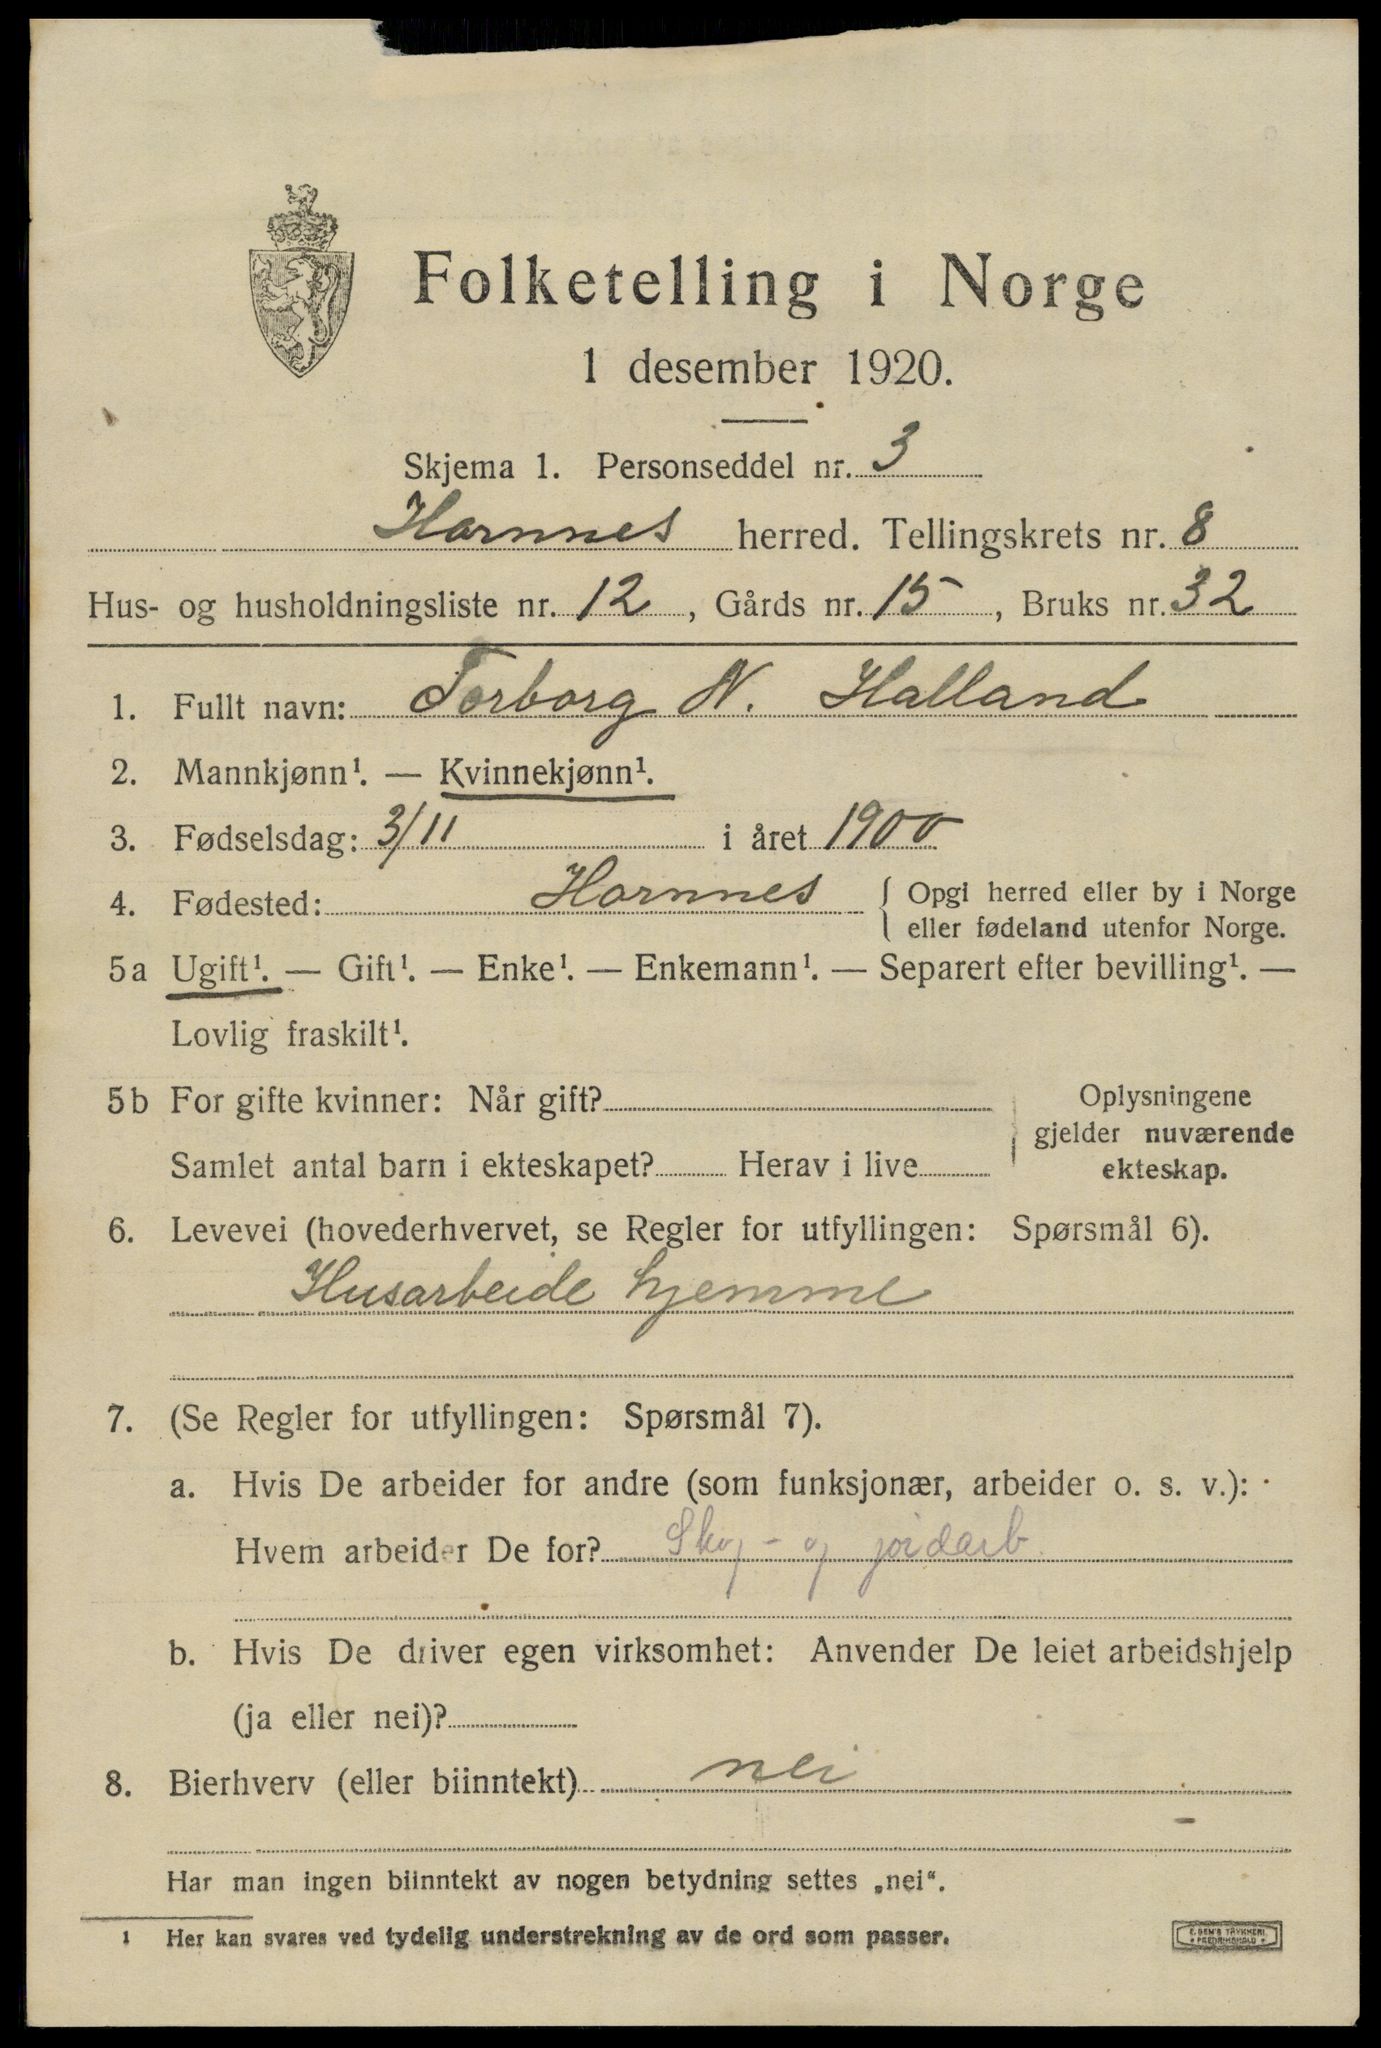 Folketelling i Norge
1 desember 1920.
Skjema 1. Personseddel nr. 3
Hornnes herred. Tellingskrets nr. 8
Hus- og husholdningsliste nr. 12, Gårds nr. 15, Bruks nr. 32
1. Fullt navn: Torborg N. Halland
2. Mannkjønn¹. — Kvinnekjønn¹.
3. Fødselsdag: 3/11 i året 1900
4. Fødested: Hornnes { Opgi herred eller by i Norge
eller fødeland utenfor Norge.
5a Ugift¹. — Gift¹. — Enke¹. — Enkemann¹. — Separert efter bevilling¹. —
Lovlig fraskilt¹.
5b For gifte kvinner: Når gift?
Samlet antal barn i ekteskapet? Herav i live
Oplysningene
gjelder nuværende
ekteskap.
6. Levevei (hovederhvervet, se Regler for utfyllingen: Spørsmål 6).
Husarbeide hjemme
7. (Se Regler for utfyllingen: Spørsmål 7).
a. Hvis De arbeider for andre (som funksjonær, arbeider o. s. v.):
Hvem arbeider De for? Skog- og jordarb
b. Hvis De driver egen virksomhet: Anvender De leiet arbeidshjelp
(ja eller nei)?
8. Bierhverv (eller biinntekt) nei
Har man ingen biinntekt av nogen betydning settes „nei".
1 Her kan svares ved tydelig understrekning av de ord som passer.
E. SEM'S TRYKKERI
FREDRIKSHALD